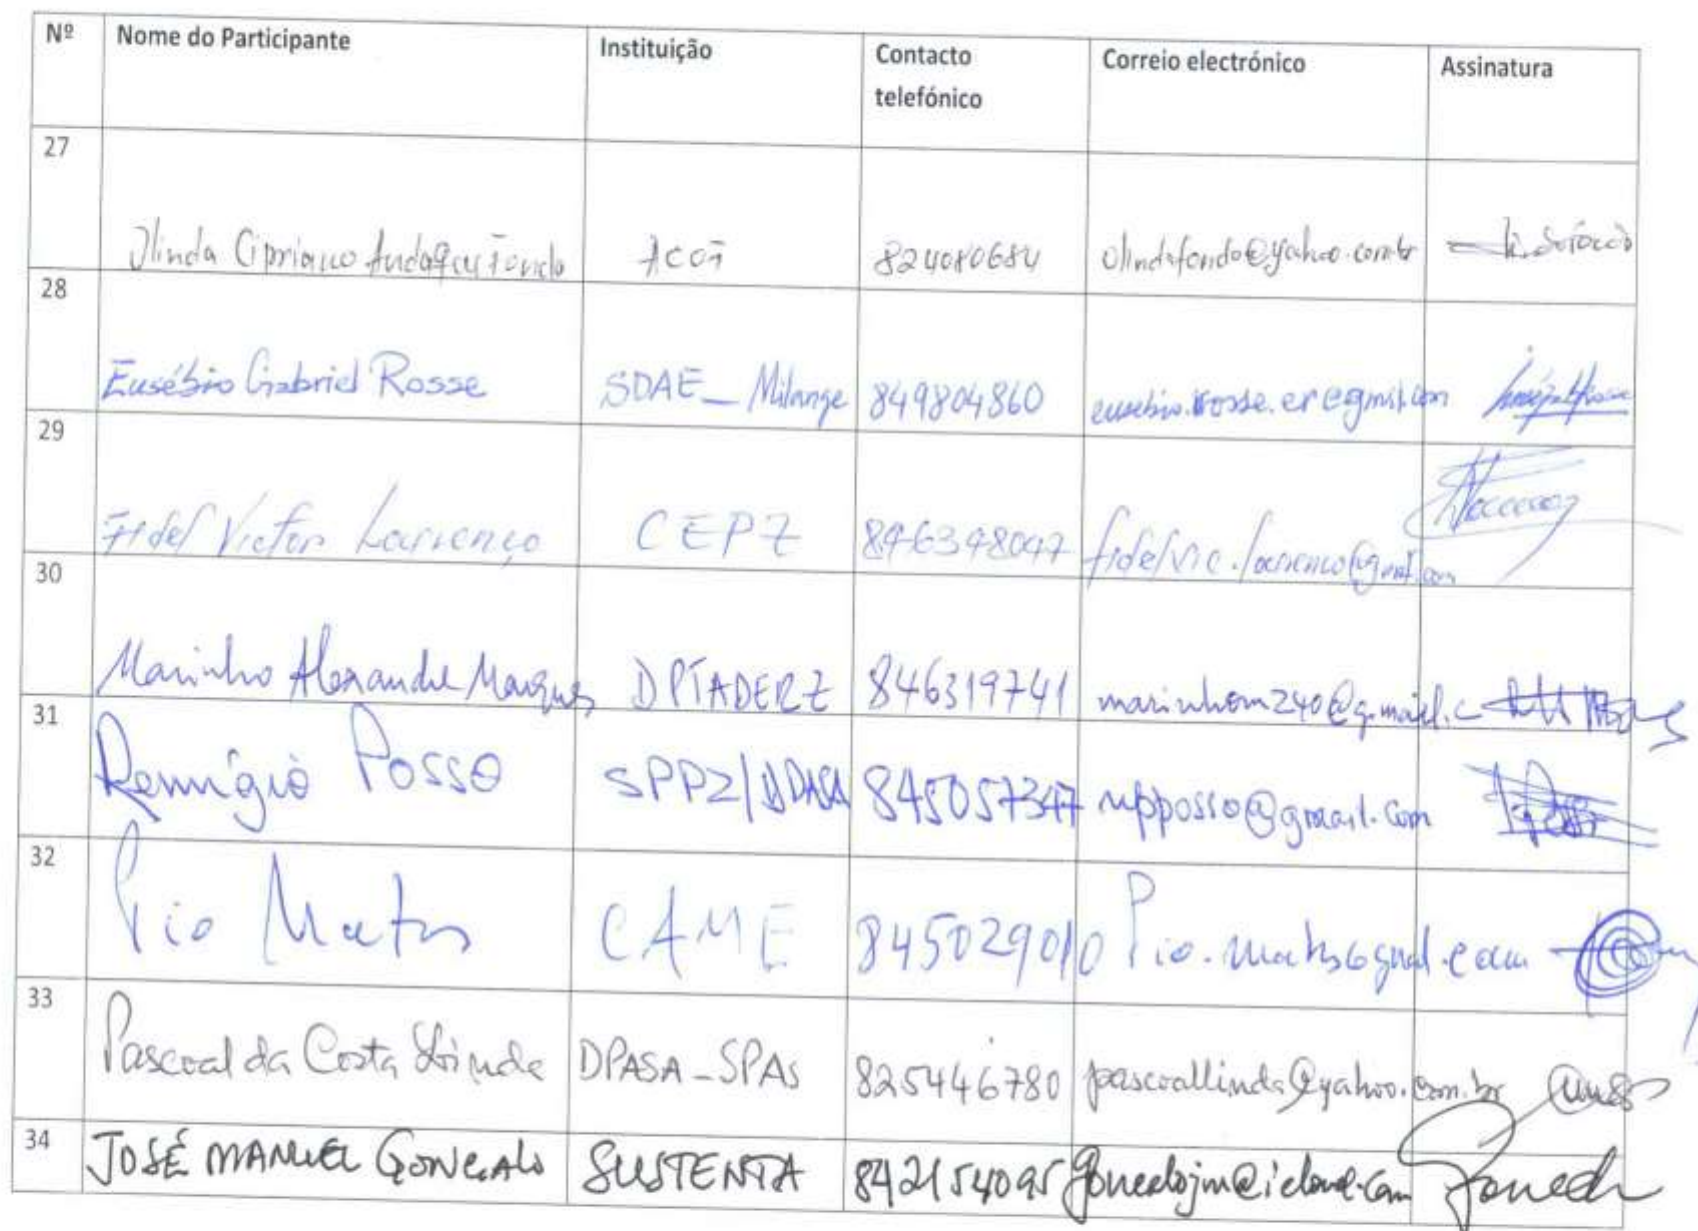 Nº Nome do Participante Instituição Contacto telefónico Correio electrónico Assinatura
27
Olinda Cipriano Fondo 824080684 olindafondo@yahoo.com.br
28
Eusébio Gabriel Rosse SDAE_Milange 849804860 eusebio.rosse.er@gmail.com
29
Fidel Victor Lourenço CEPZ 846348047
30
Marinho Alexandre Marques DPTADERZ 846319741 marinhom240@gmail.c
31
Remígio Posso SPPZ/DPASA 845057347 rfpposso@gmail.com
32
Pio Matos CAME 845029010
33
Pascoal da Costa Linda DPASA_SPAs 825446780 pascoallinda@yahoo.com.br
34
JOSÉ MANUEL GONÇALO SUSTENTA 842154095 goncalojm@icloud.com